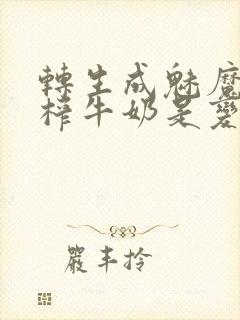 轉生成魅魔
榨牛奶是變
嚴丰拎